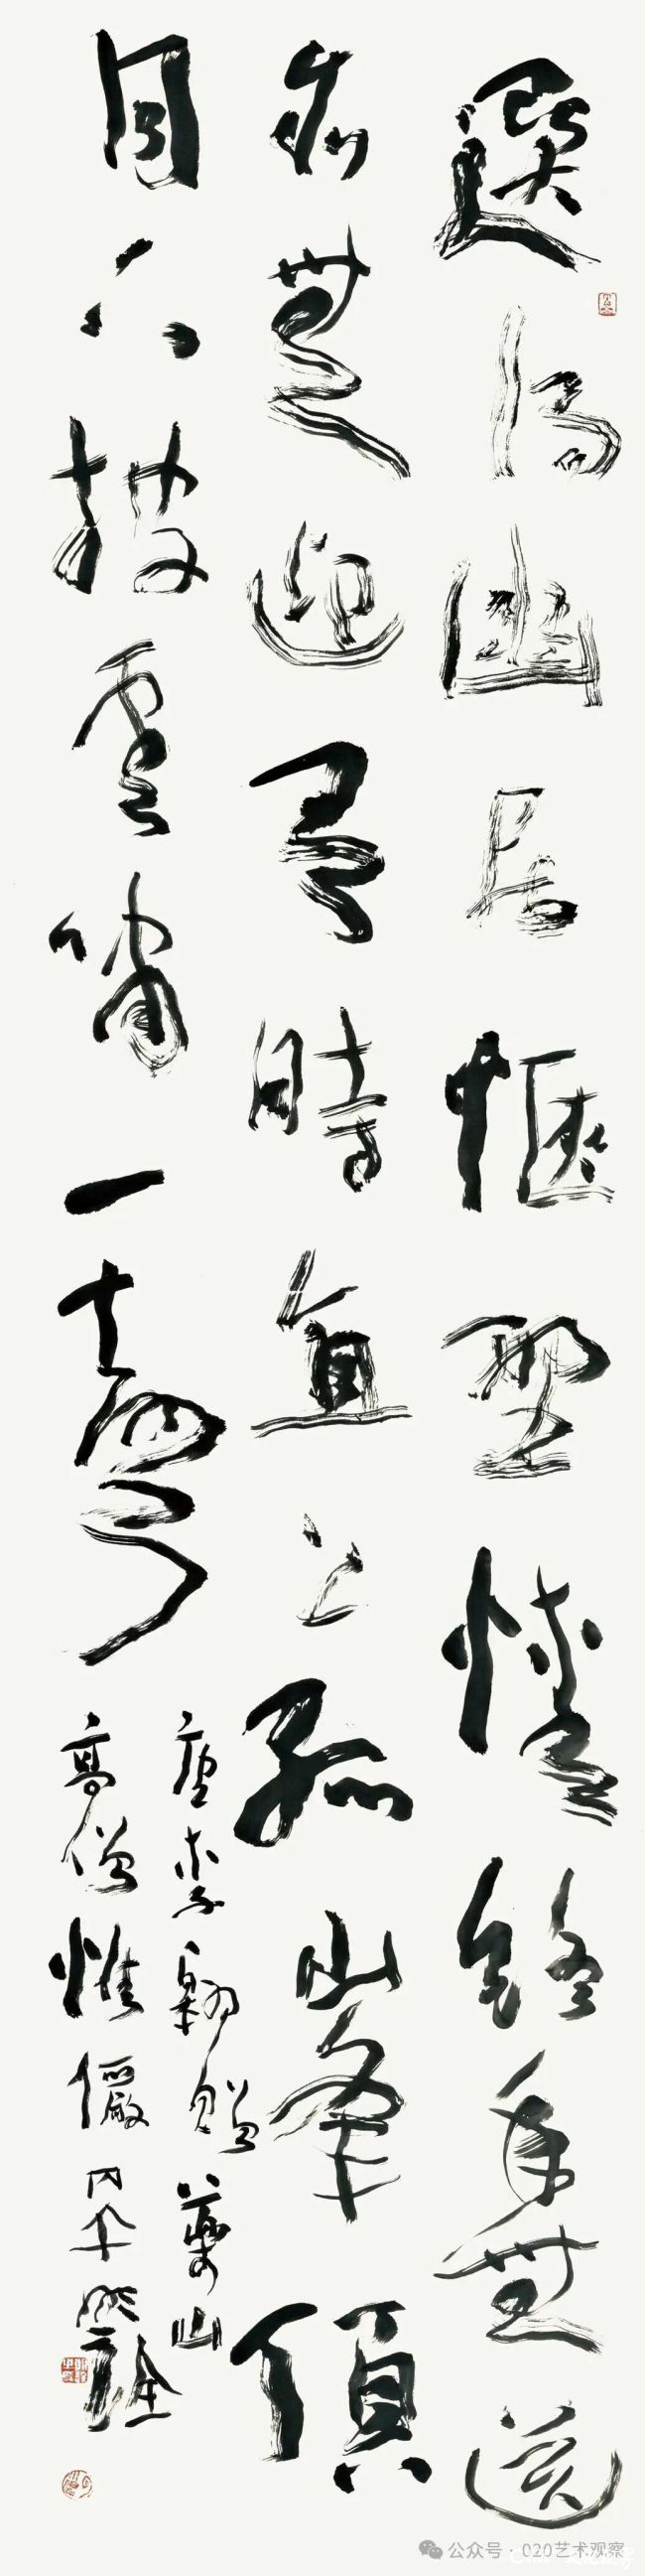 選得幽居愜野情終年無送
亦無迎有時直上孤峯頂
月下披雲嘯一聲
唐李翱贈藥山
高僧惟儼
公众号 · 020艺术观察